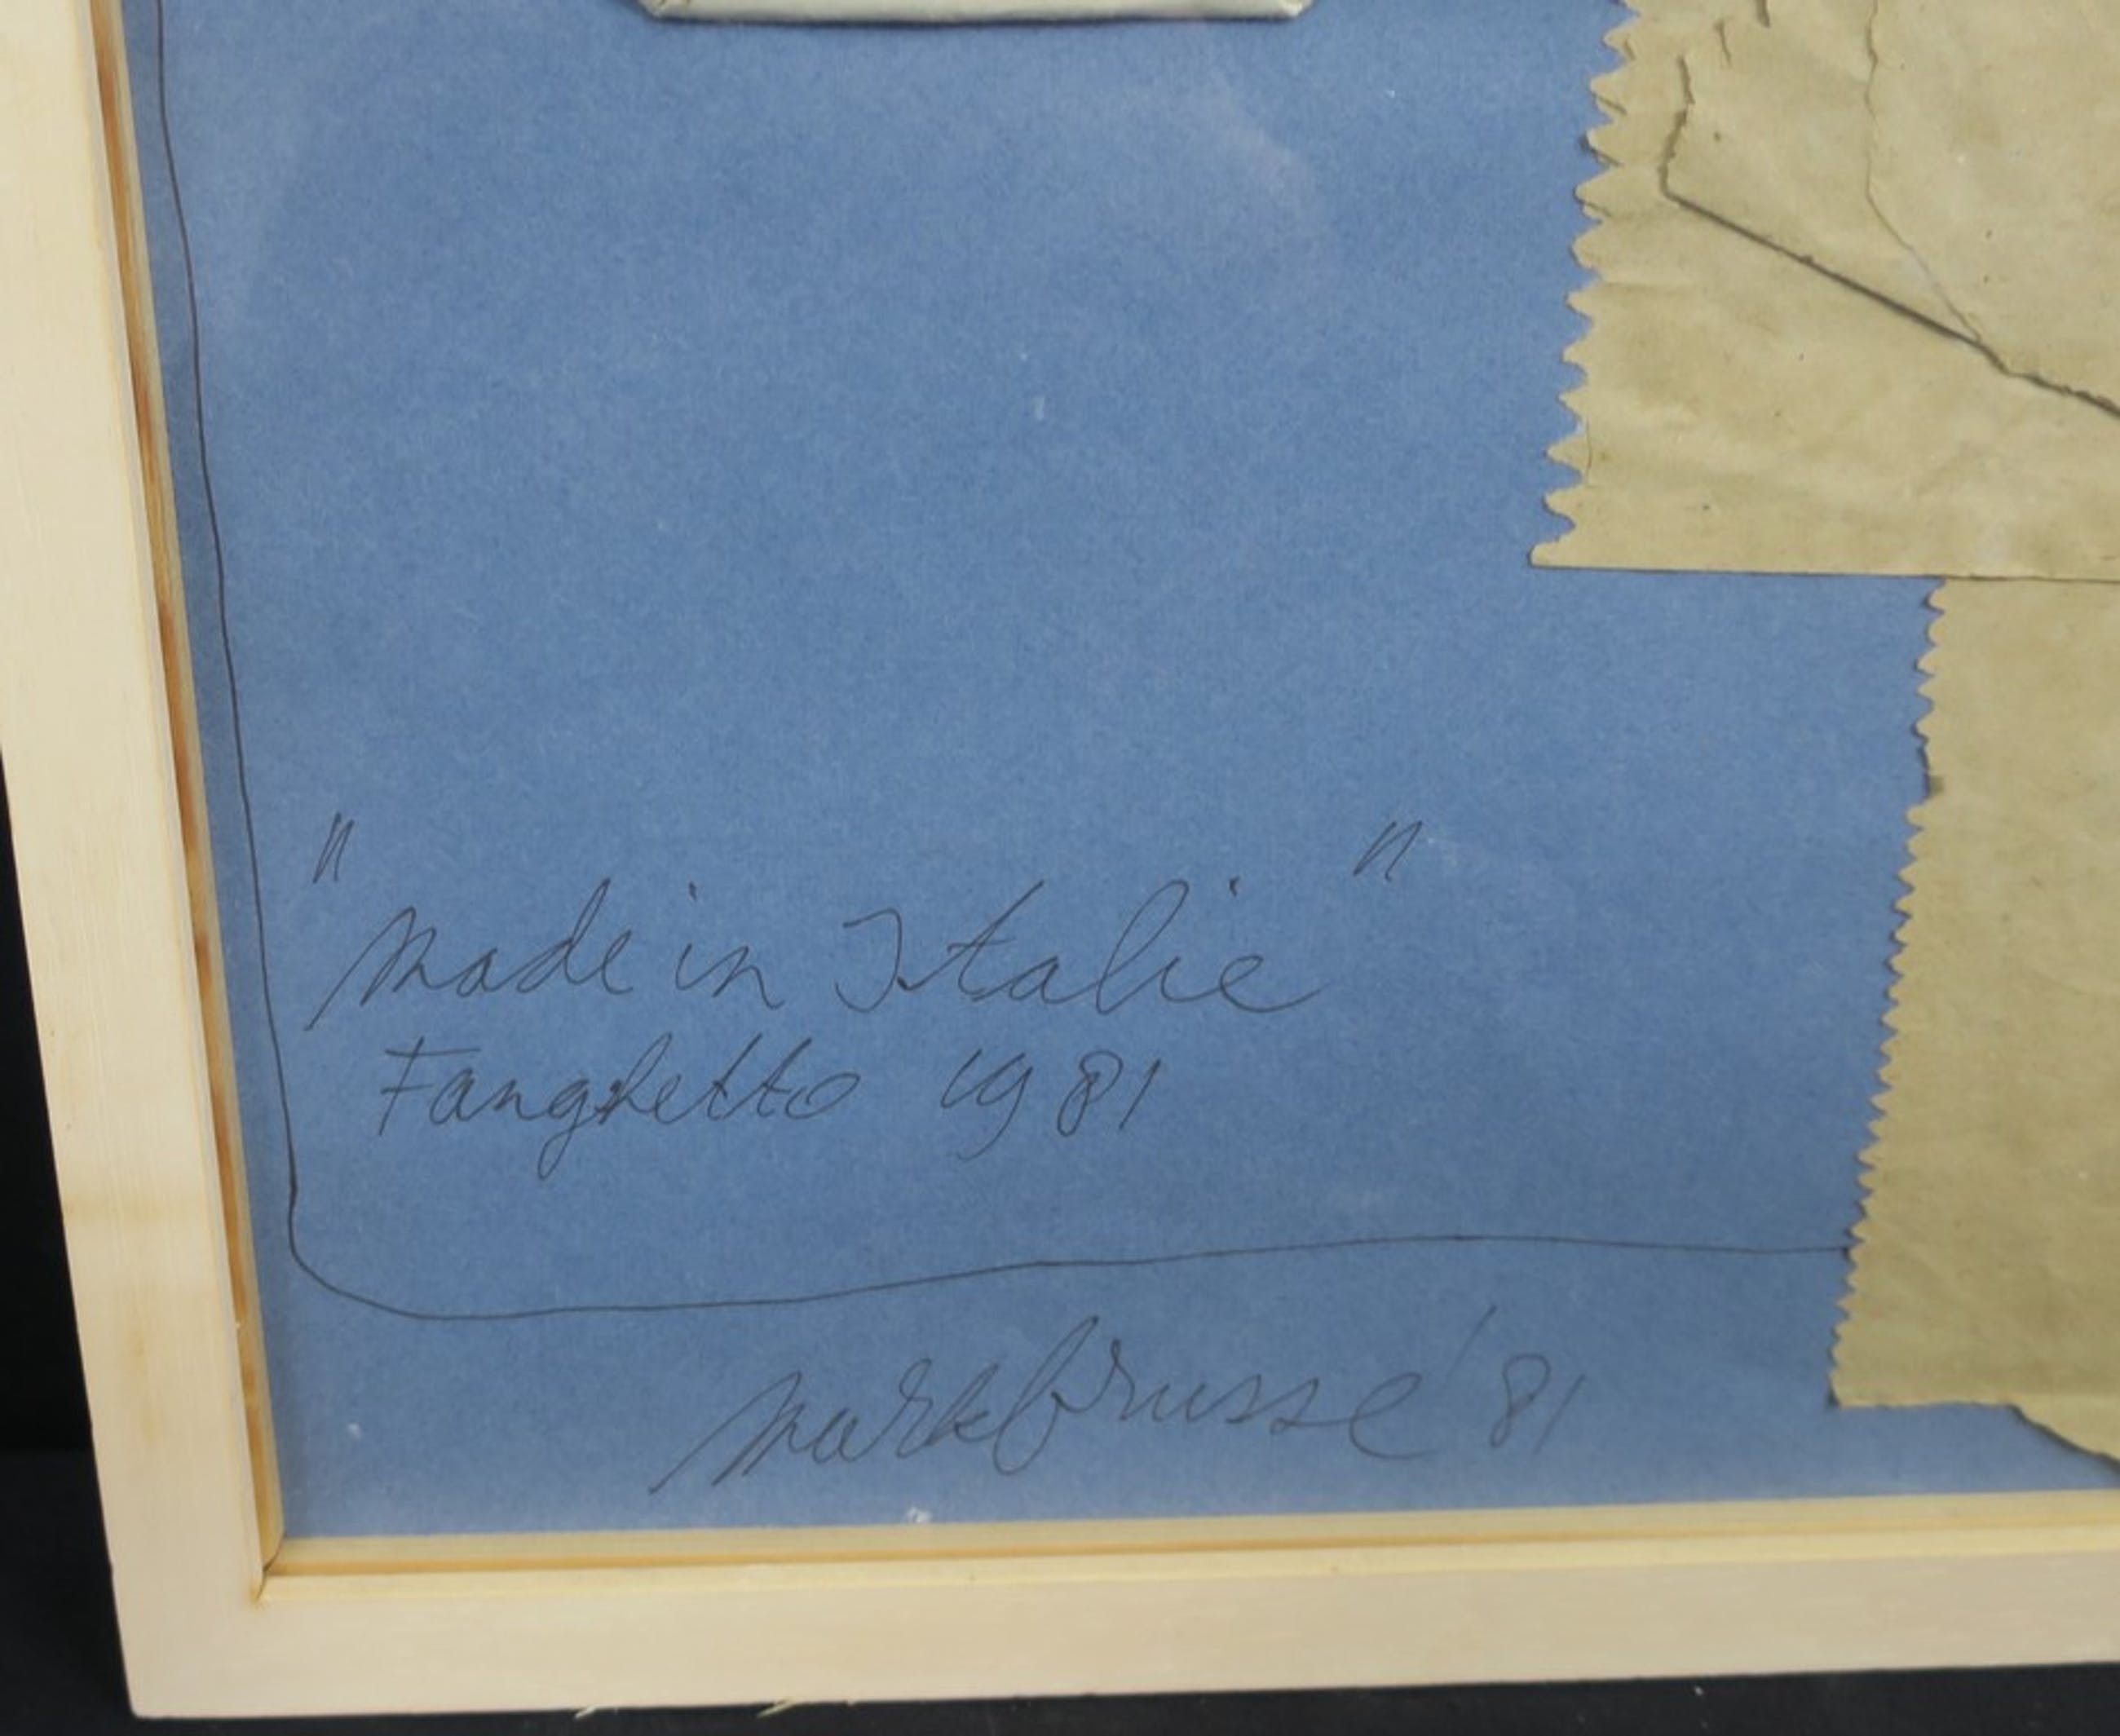 "made in Italie"
Fanghetto 1981
mark brusse '81